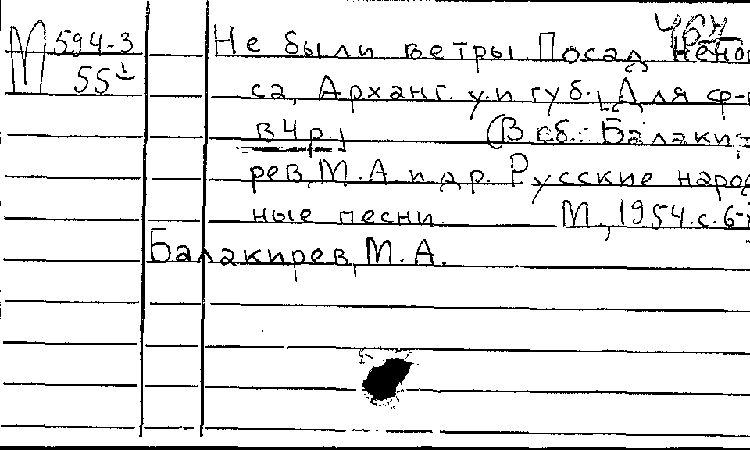 467
М 594-3
55
Не были ветры Посад Нено
са, Арханг. у. и губ. Для ф-
в 4 р.) (В сб.: Балаки
рев, М.А. и др. Русские народ
ные песни. М., 1954. с. 6-
Балакирев, М.А.